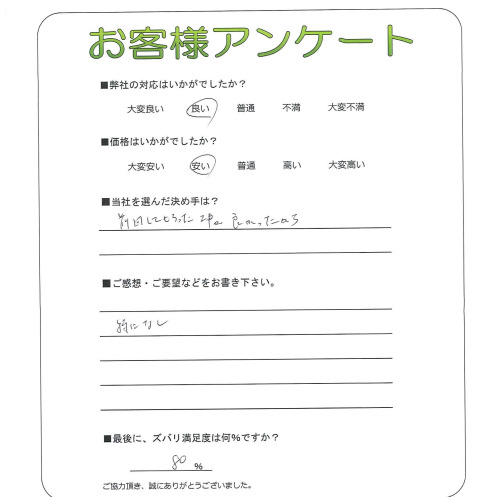 お客様アンケート
■弊社の対応はいかがでしたか？
大変良い 良い 普通 不満 大変不満
■価格はいかがでしたか？
大変安い 安い 普通 高い 大変高い
■当社を選んだ決め手は？
前回してもらった 良かったから
■ご感想・ご要望などをお書き下さい。
特になし
■最後に、ズバリ満足度は何％ですか？
80 ％
ご協力頂き、誠にありがとうございました。